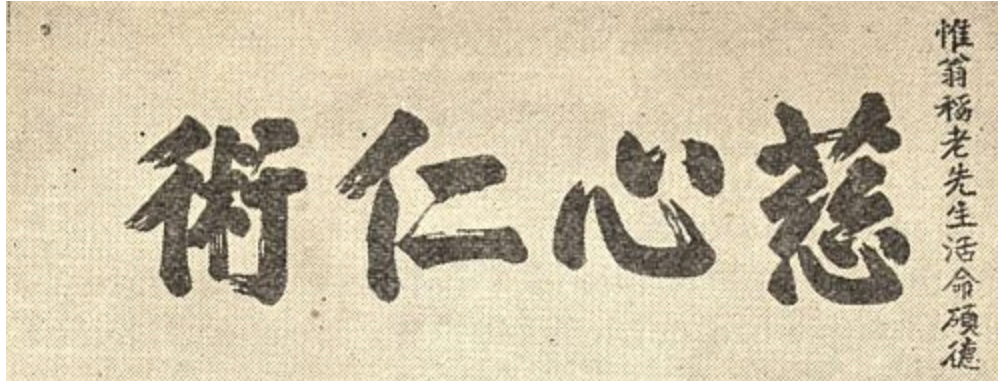 惟翁稻老先生活命碩德
慈心仁術